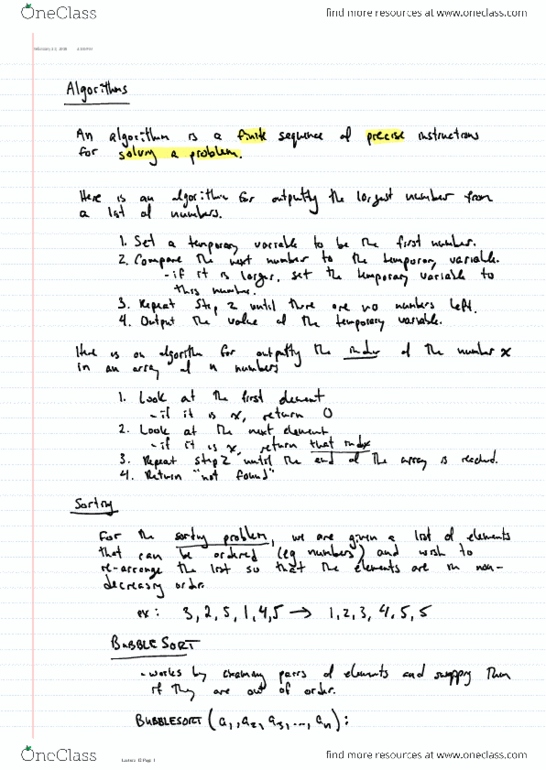 OneClass
find more resources at www.oneclass.com
Algorithms
An algorithm is a finite sequence of precise instructions
for solving a problem.
Here is an algorithm for outputting the largest number from
a list of numbers.
1. Set a temporary variable to be the first number.
2. Compare the next number to the temporary variable.
- if it is larger, set the temporary variable to
this number.
3. Repeat Step 2 until there are no numbers left.
4. Output the value of the temporary variable.
Here is an algorithm for outputting the index of the number x
in an array of n numbers
1. Look at the first element
- if it is x, return 0
2. Look at the next element
- if it is x, return that index
3. Repeat step 2 until the end of the array is reached.
4. Return "not found"
Sorting
For the sorting problem, we are given a list of elements
that can be ordered (eg numbers) and wish to
re-arrange the list so that the elements are in non-
decreasing order.
ex: 3, 2, 5, 1, 4, 5 → 1, 2, 3, 4, 5, 5
BUBBLE SORT
- works by examining pairs of elements and swapping them
if they are out of order.
BUBBLESORT (a₁, a₂, a₃, ..., aₙ):
OneClass
find more resources at www.oneclass.com